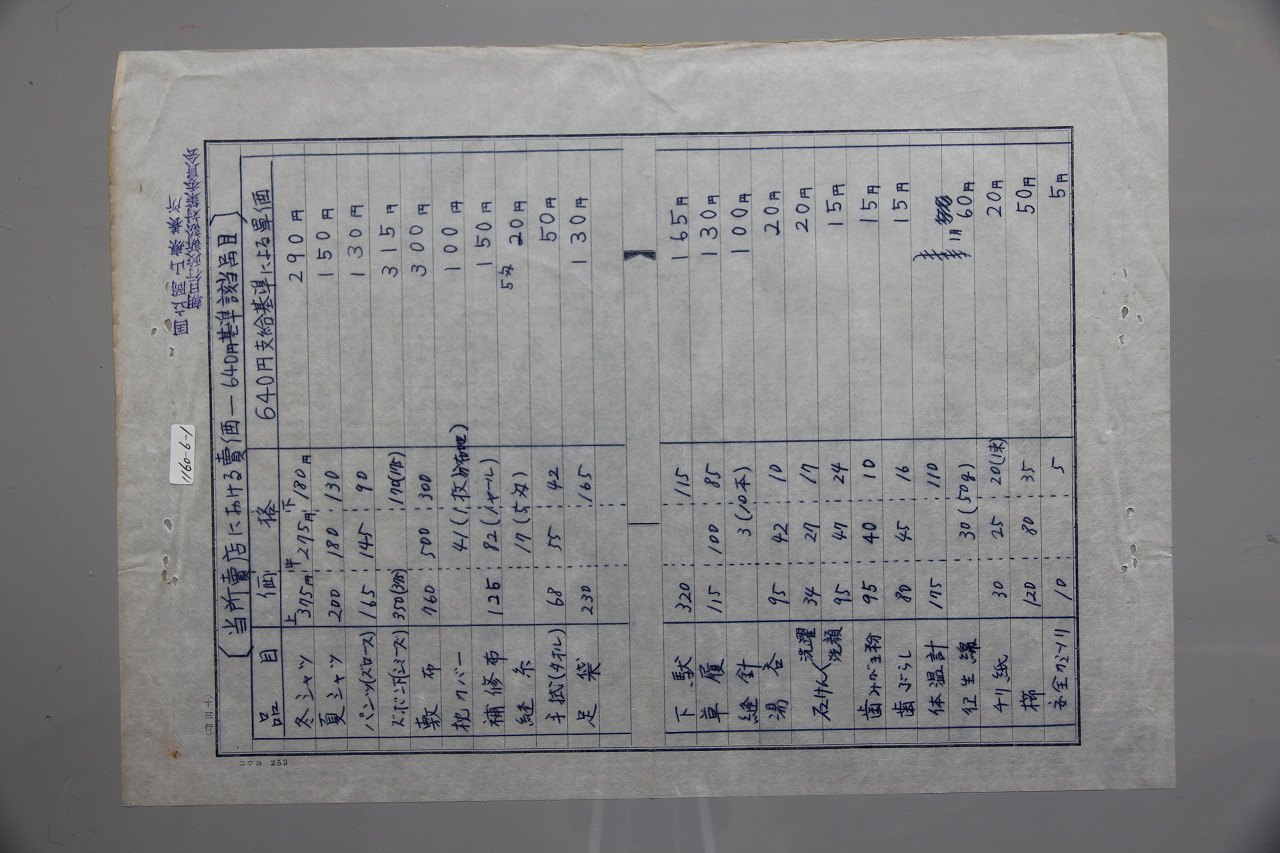 1160-6-1
国立岡山療養所
朝日行政訴訟対策委員会
(当所賣店における賣価—640円基準該当品目)
品目 価格 640円支給基準による単価
冬シャツ 上375円 中275円 下180円 290円
夏シャツ 200 180 130 150円
パンツ(ズロース) 165 145 90 130円
ズボン下(シミーズ) 350(375) 170(175) 315円
敷布 760 500 300 300円
枕カバー 41(1枚分 100円
補修布 125 82(1ヤール) 150円
縫糸 17(5匁) 5匁 20円
手拭(タオル) 68 55 42 50円
足袋 230 165 130円
下駄 320 115 165円
草履 115 100 85 130円
縫針 3(10本) 100円
湯呑 95 42 10 20円
石けん 洗濯 34 27 17 20円
洗顔 95 47 24 15円
歯みがき粉 95 40 10 15円
歯ぶらし 80 45 16 15円
体温計 175 110
衛生綿 30(50g) 1月 60円
チリ紙 30 25 20(1束) 20円
櫛 120 80 35 50円
安全カミソリ 10 5 5円
コクヨ 253